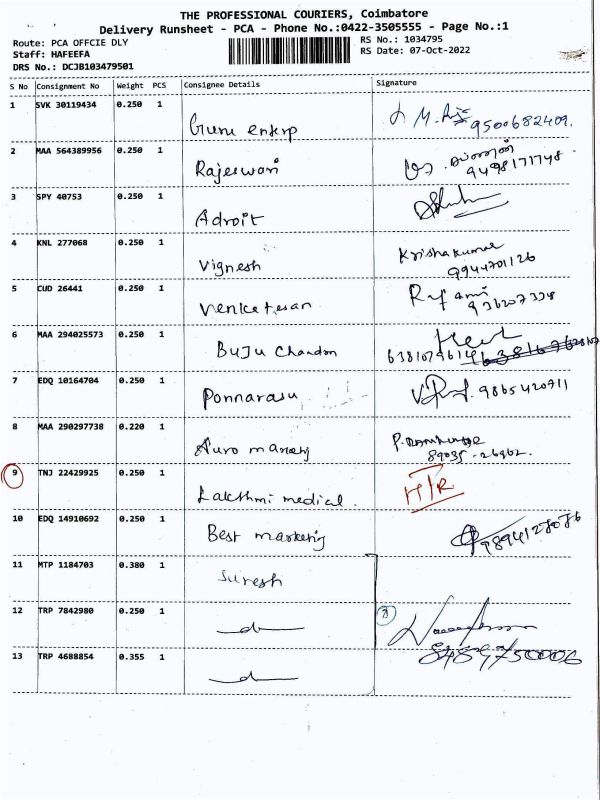 THE PROFESSIONAL COURIERS, Coimbatore
Delivery Runsheet - PCA - Phone No.:0422-3505555 - Page No.:1
Route: PCA OFFCIE DLY
RS No.: 1034795
Staff: HAFEEFA
RS Date: 07-Oct-2022
DRS No.: DCJB103479501
S No Consignment No Weight PCS Consignee Details Signature
1 SVK 30119434 0.250 1
Guru enterp 9500682409.
2 MAA 564389956 0.250 1
Rajeswari 9498171748
3 SPY 40753 0.250 1
Adroit
4 KNL 277068 0.250 1
Vignesh Krishakumar
9944701126
5 CUD 26441 0.250 1
venketesan
6 MAA 294025573 0.250 1
Buju Chandon
7 EDQ 10164704 0.250 1
Ponnarasu 9865420711
8 MAA 290297738 0.220 1
Auro
89035-26962.
9 TNJ 22429925 0.250 1
Lakshmi medical.
10 EDQ 14910692 0.250 1
Best
11 MTP 1184703 0.380 1
Suresh
12 TRP 7842980 0.250 1
13 TRP 4688854 0.355 1
8489750006